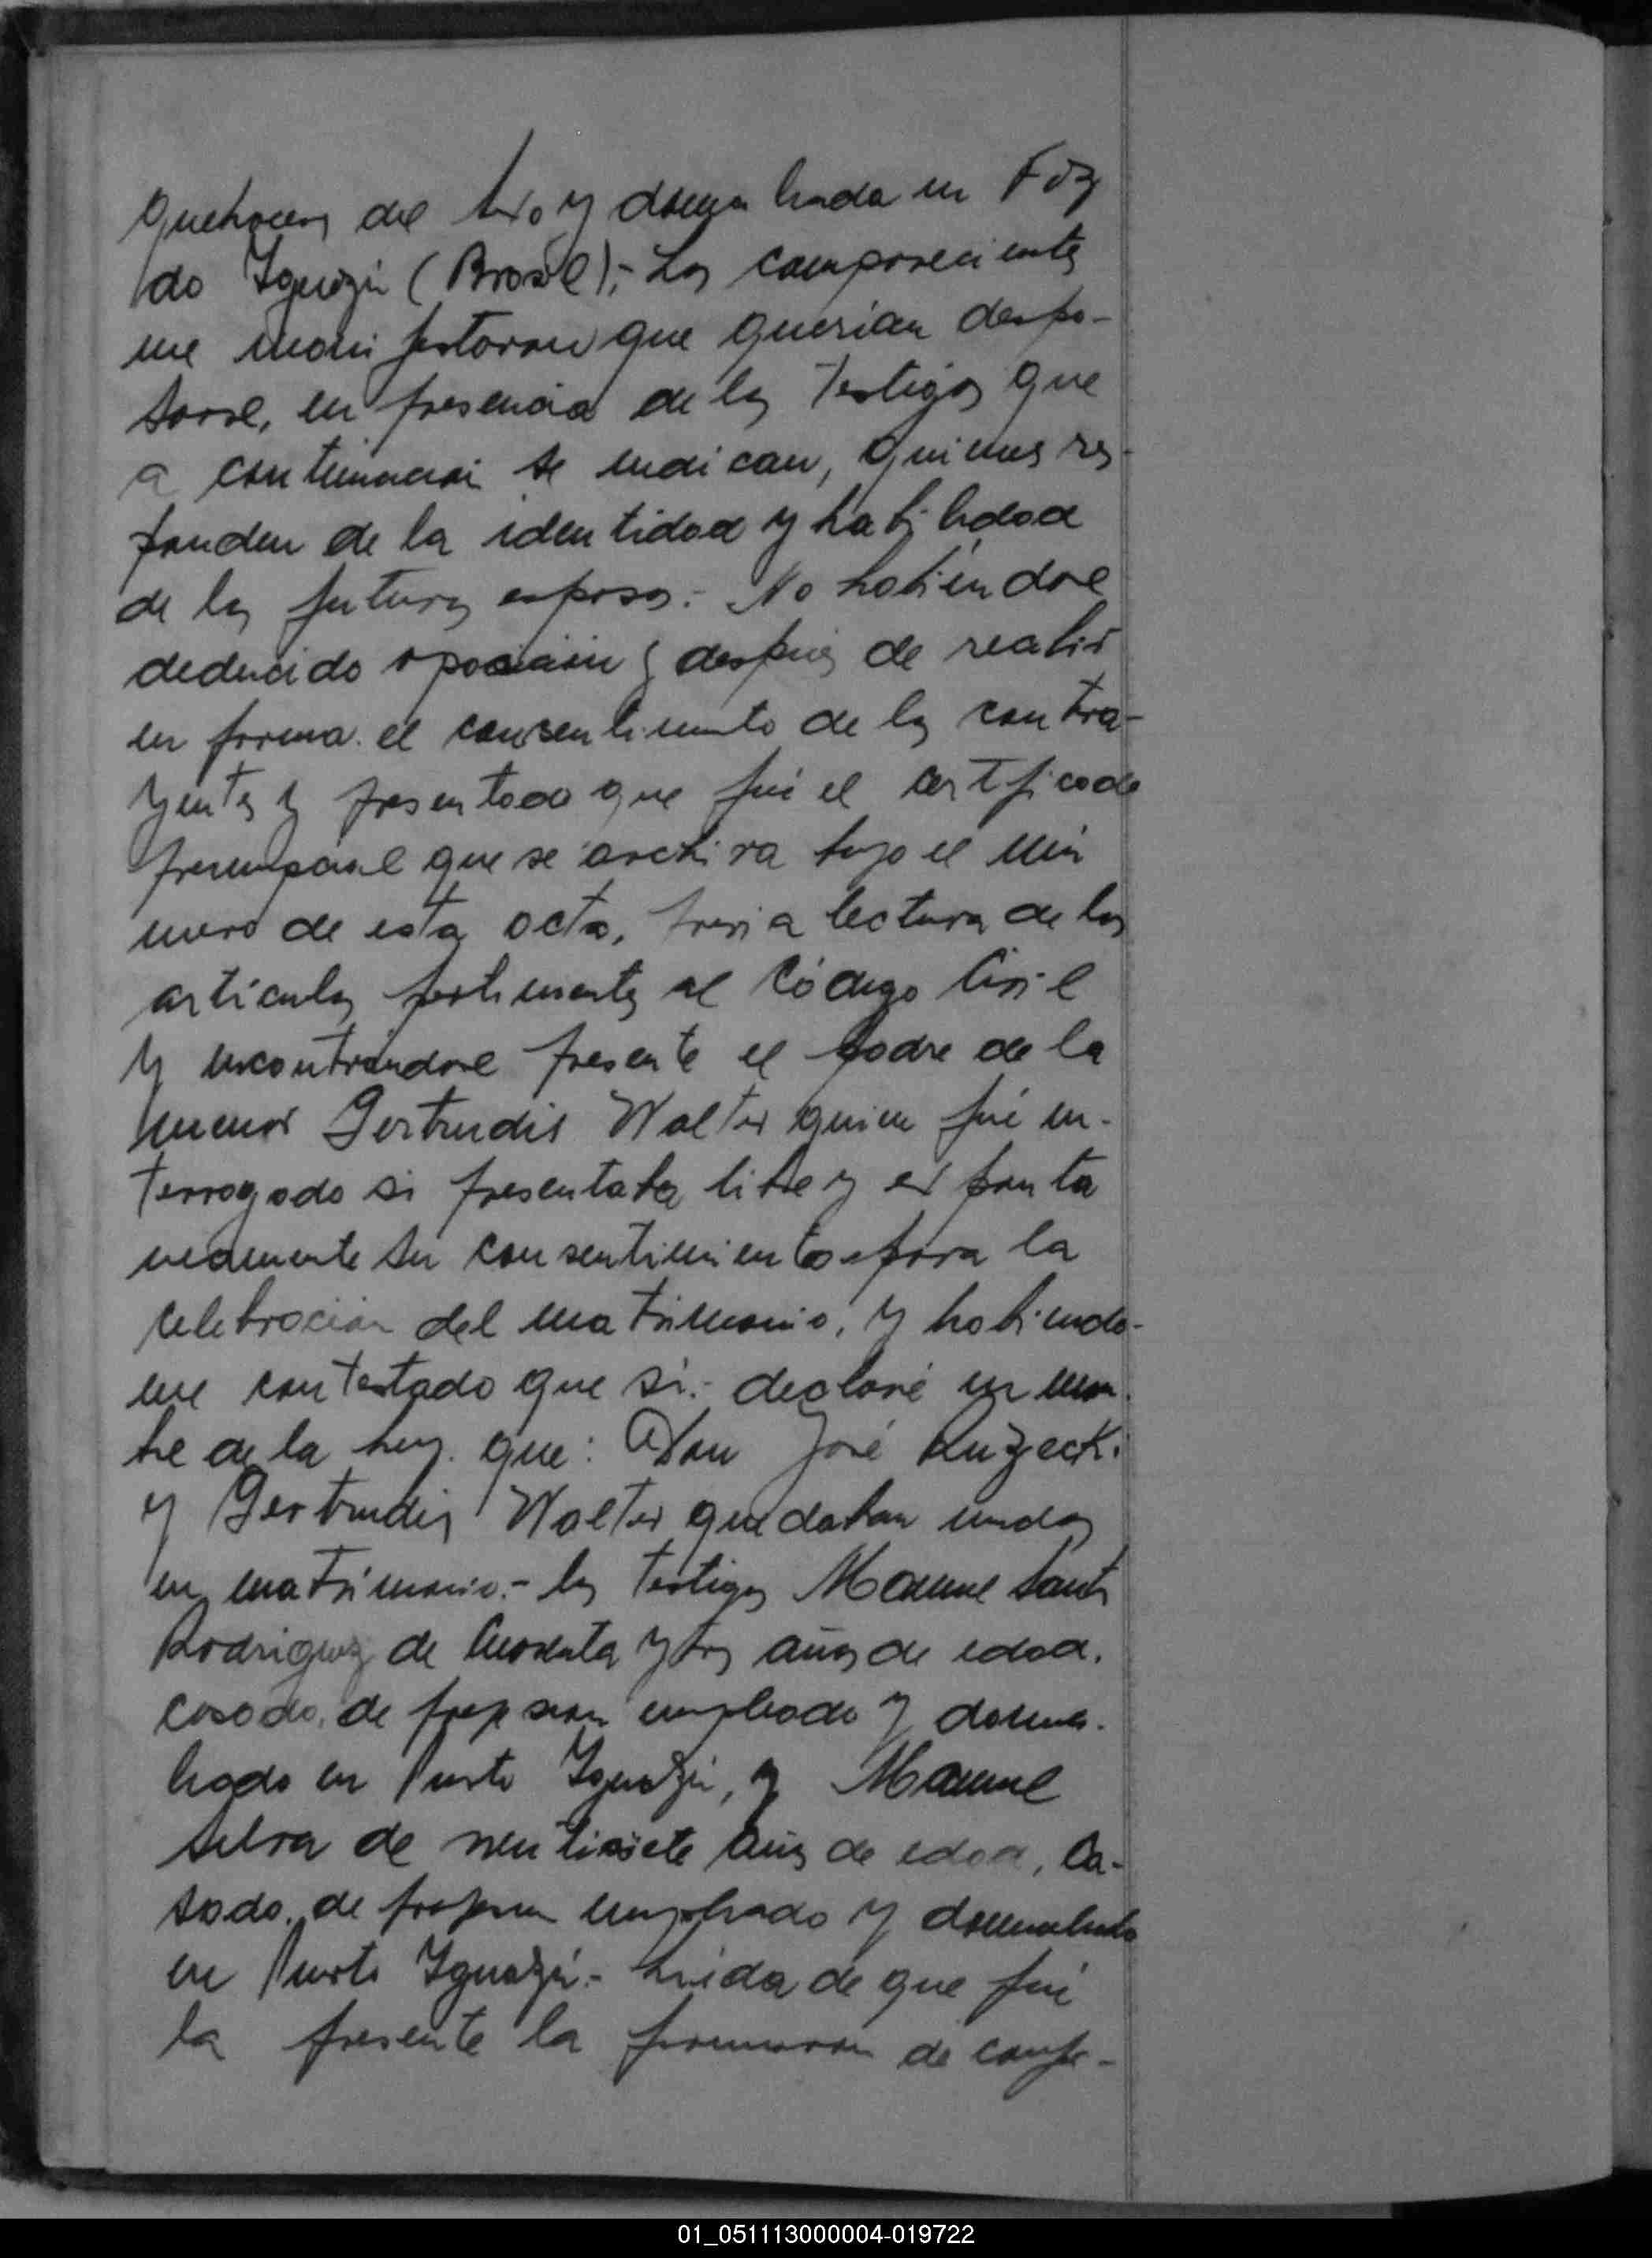 quehaceres del  y domiciliada en Foz
do Iguazú (Brasil).- Los comparecientes
me manifestaron que querian despo-
sarse, en presencia de los testigos que
a continuación se indican, quienes res-
ponden de la identidad y habilidad
de los futuros esposos.- No habiéndose
deducido oposición y después de recibir
en forma el consentimiento de los contra-
yentes y presentado que fué el certificado
prenupcial que se archiva bajo el nú
mero de esta acta, previa lectura de los
artículos pertinentes al Código Civil
y encontrándose presente el padre de la
menor Gertrudis Walter quien fué in-
terrogado si presentaba libre y esponta
neamente su consentimiento para la
celebración del matrimonio, y habiendo-
me contestado que si.- declaré en nom-
bre de la ley. que: Don José Ruzecki
y Gertrudis Walter quedaban unidos
en matrimonio.- los testigos Manuel Santos
Rodriguez de cuarenta y tres años de edad,
casado, de profesión empleado y domici-
liado en Puerto Iguazú, y Manuel
Silva de veintisiete años de edad, ca-
sado, de profesión empleado y domiciliado
en Puerto Iguazú.- Leida de que fué
la presente la firmaron de confor-
01_051113000004-019722